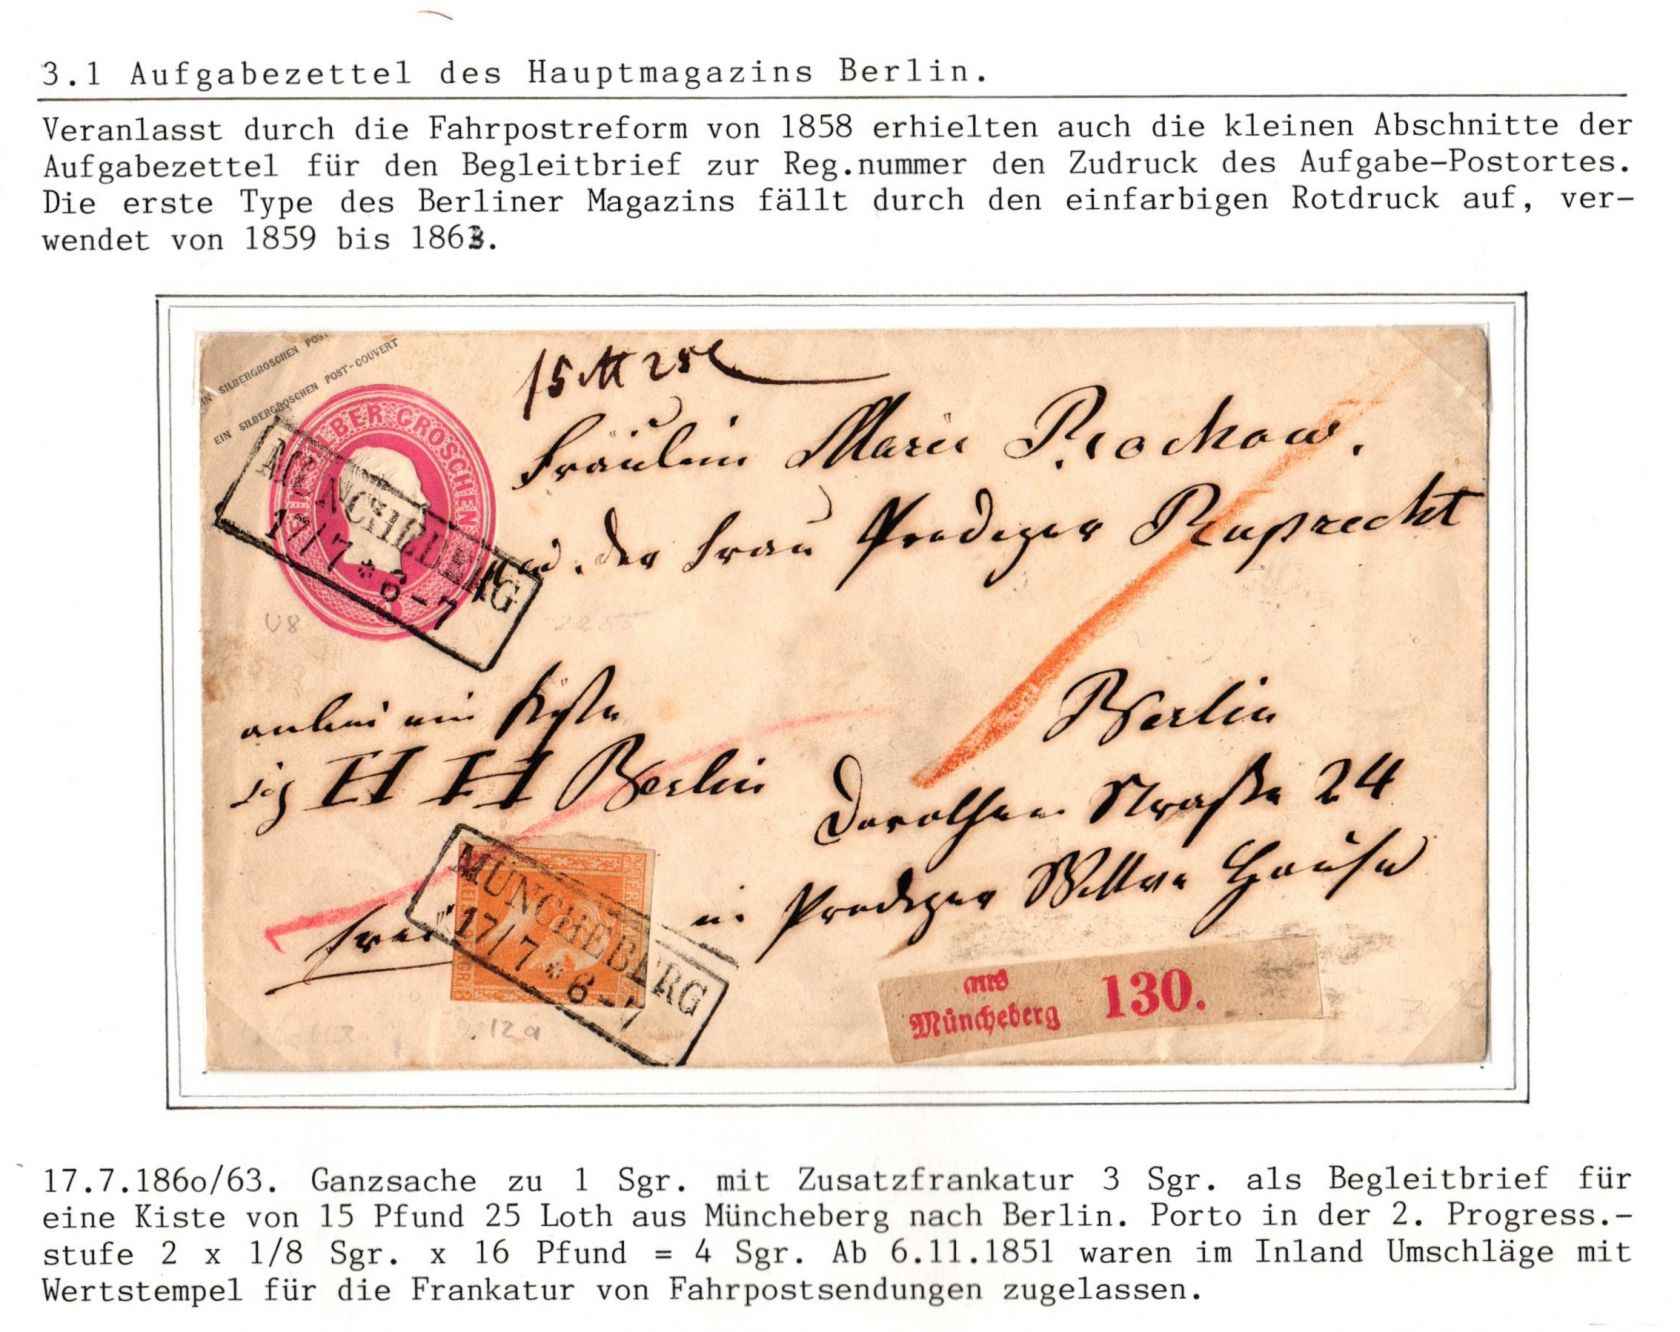 3.1 Aufgabezettel des Hauptmagazins Berlin.
Veranlasst durch die Fahrpostreform von 1858 erhielten auch die kleinen Abschnitte der
Aufgabezettel für den Begleitbrief zur Reg.nummer den Zudruck des Aufgabe-Postortes.
Die erste Type des Berliner Magazins fällt durch den einfarbigen Rotdruck auf, ver-
wendet von 1859 bis 1863.
EIN SILBERGROSCHEN POST
EIN SILBERGROSCHEN POST-COUVERT
SILBER GROSCHEN
MÜNCHEBERG
17/7 * 6-7
15 ℔ 25
Fräulein Marie Rochow.
der Frau Prediger Ruprecht
U8
anbei ein Kiste
sig H H Berlin
Berlin
Dorotheen Straße 24
in Prediger Wittwe Hause
frei
MÜNCHEBERG
17/7 * 6-7
12a
aus
Müncheberg 130.
17.7.186o/63. Ganzsache zu 1 Sgr. mit Zusatzfrankatur 3 Sgr. als Begleitbrief für
eine Kiste von 15 Pfund 25 Loth aus Müncheberg nach Berlin. Porto in der 2. Progress.-
stufe 2 x 1/8 Sgr. x 16 Pfund = 4 Sgr. Ab 6.11.1851 waren im Inland Umschläge mit
Wertstempel für die Frankatur von Fahrpostsendungen zugelassen.